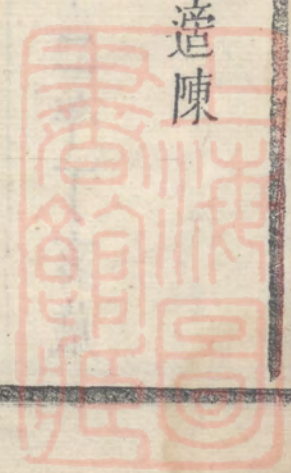 適陳
上海圖
書館藏